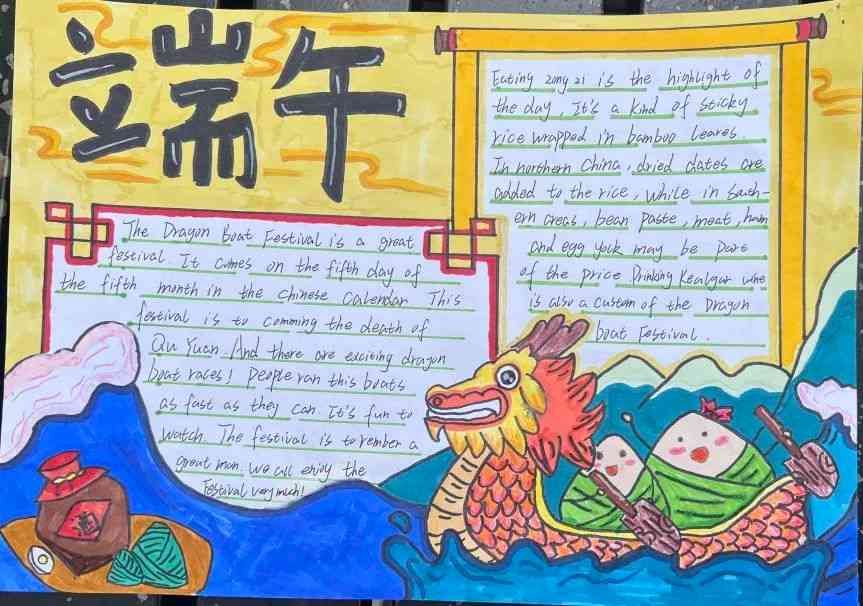 端午
The Dragon Boat Festival is a great
festival. It comes on the fifth day of
the fifth month in the chinese calendar This
festival is to comming the death of
Qu Yuan. And there are exciting dragon
boat races! People ran this boats
as fast as they can. It's fun to
watch. The festival is to rember a
great man. We all enjoy the
Festival very much!
Eating zong zi is the highlight of
the day, It's a kind of sticky
rice wrapped in bamboo leares.
In northern China, dried dates are
added to the rice, while in south-
ern areas, bean paste, meat, ham
and egg yock may be part
of the price Drinking Realgar wine
is also a custom of the Dragon
boat Festival.
酒